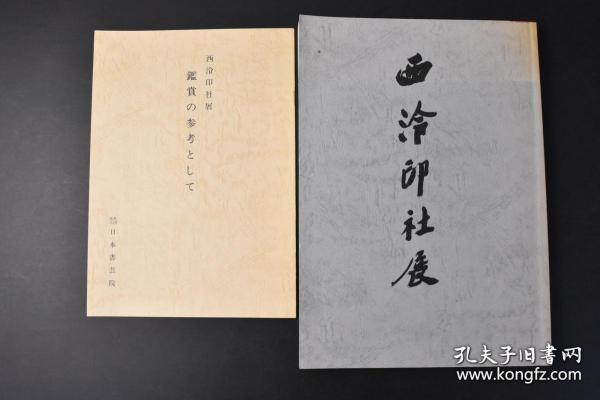 西泠印社展
鑑賞の参考として
日本書芸院
西泠印社展
孔夫子旧书网
www.kongfz.com